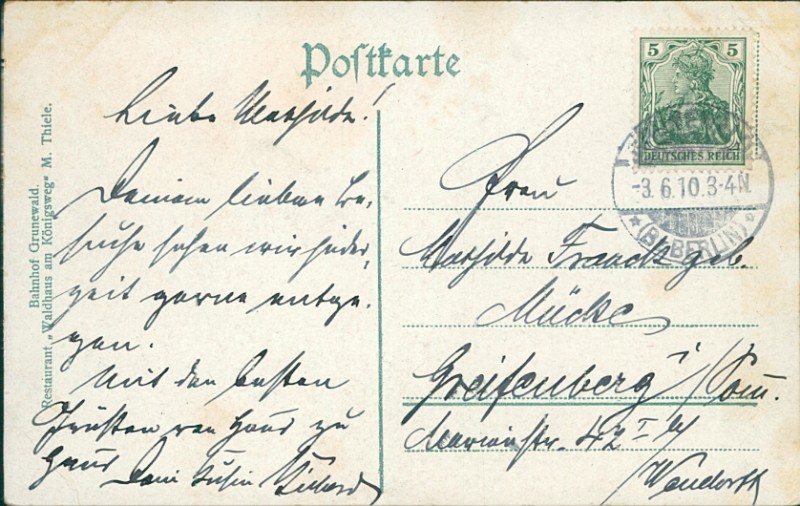 Postkarte
Liebe Mathilde!
Deinem lieben Be-
suche sehen wir jeder-
zeit gerne entge-
gen.
Mit den besten
Grüßen von Haus zu
Haus Dein
Bahnhof Grunewald.
Restaurant „Waldhaus am Königsweg" M. Thiele.
5 5
DEUTSCHES REICH
-3.6.10.3-4N.
(BZ. BERLIN)
Frau
Mathilde Franck geb.
Mücke
Greifenberg i/Pom.
Marienstr. 42 I